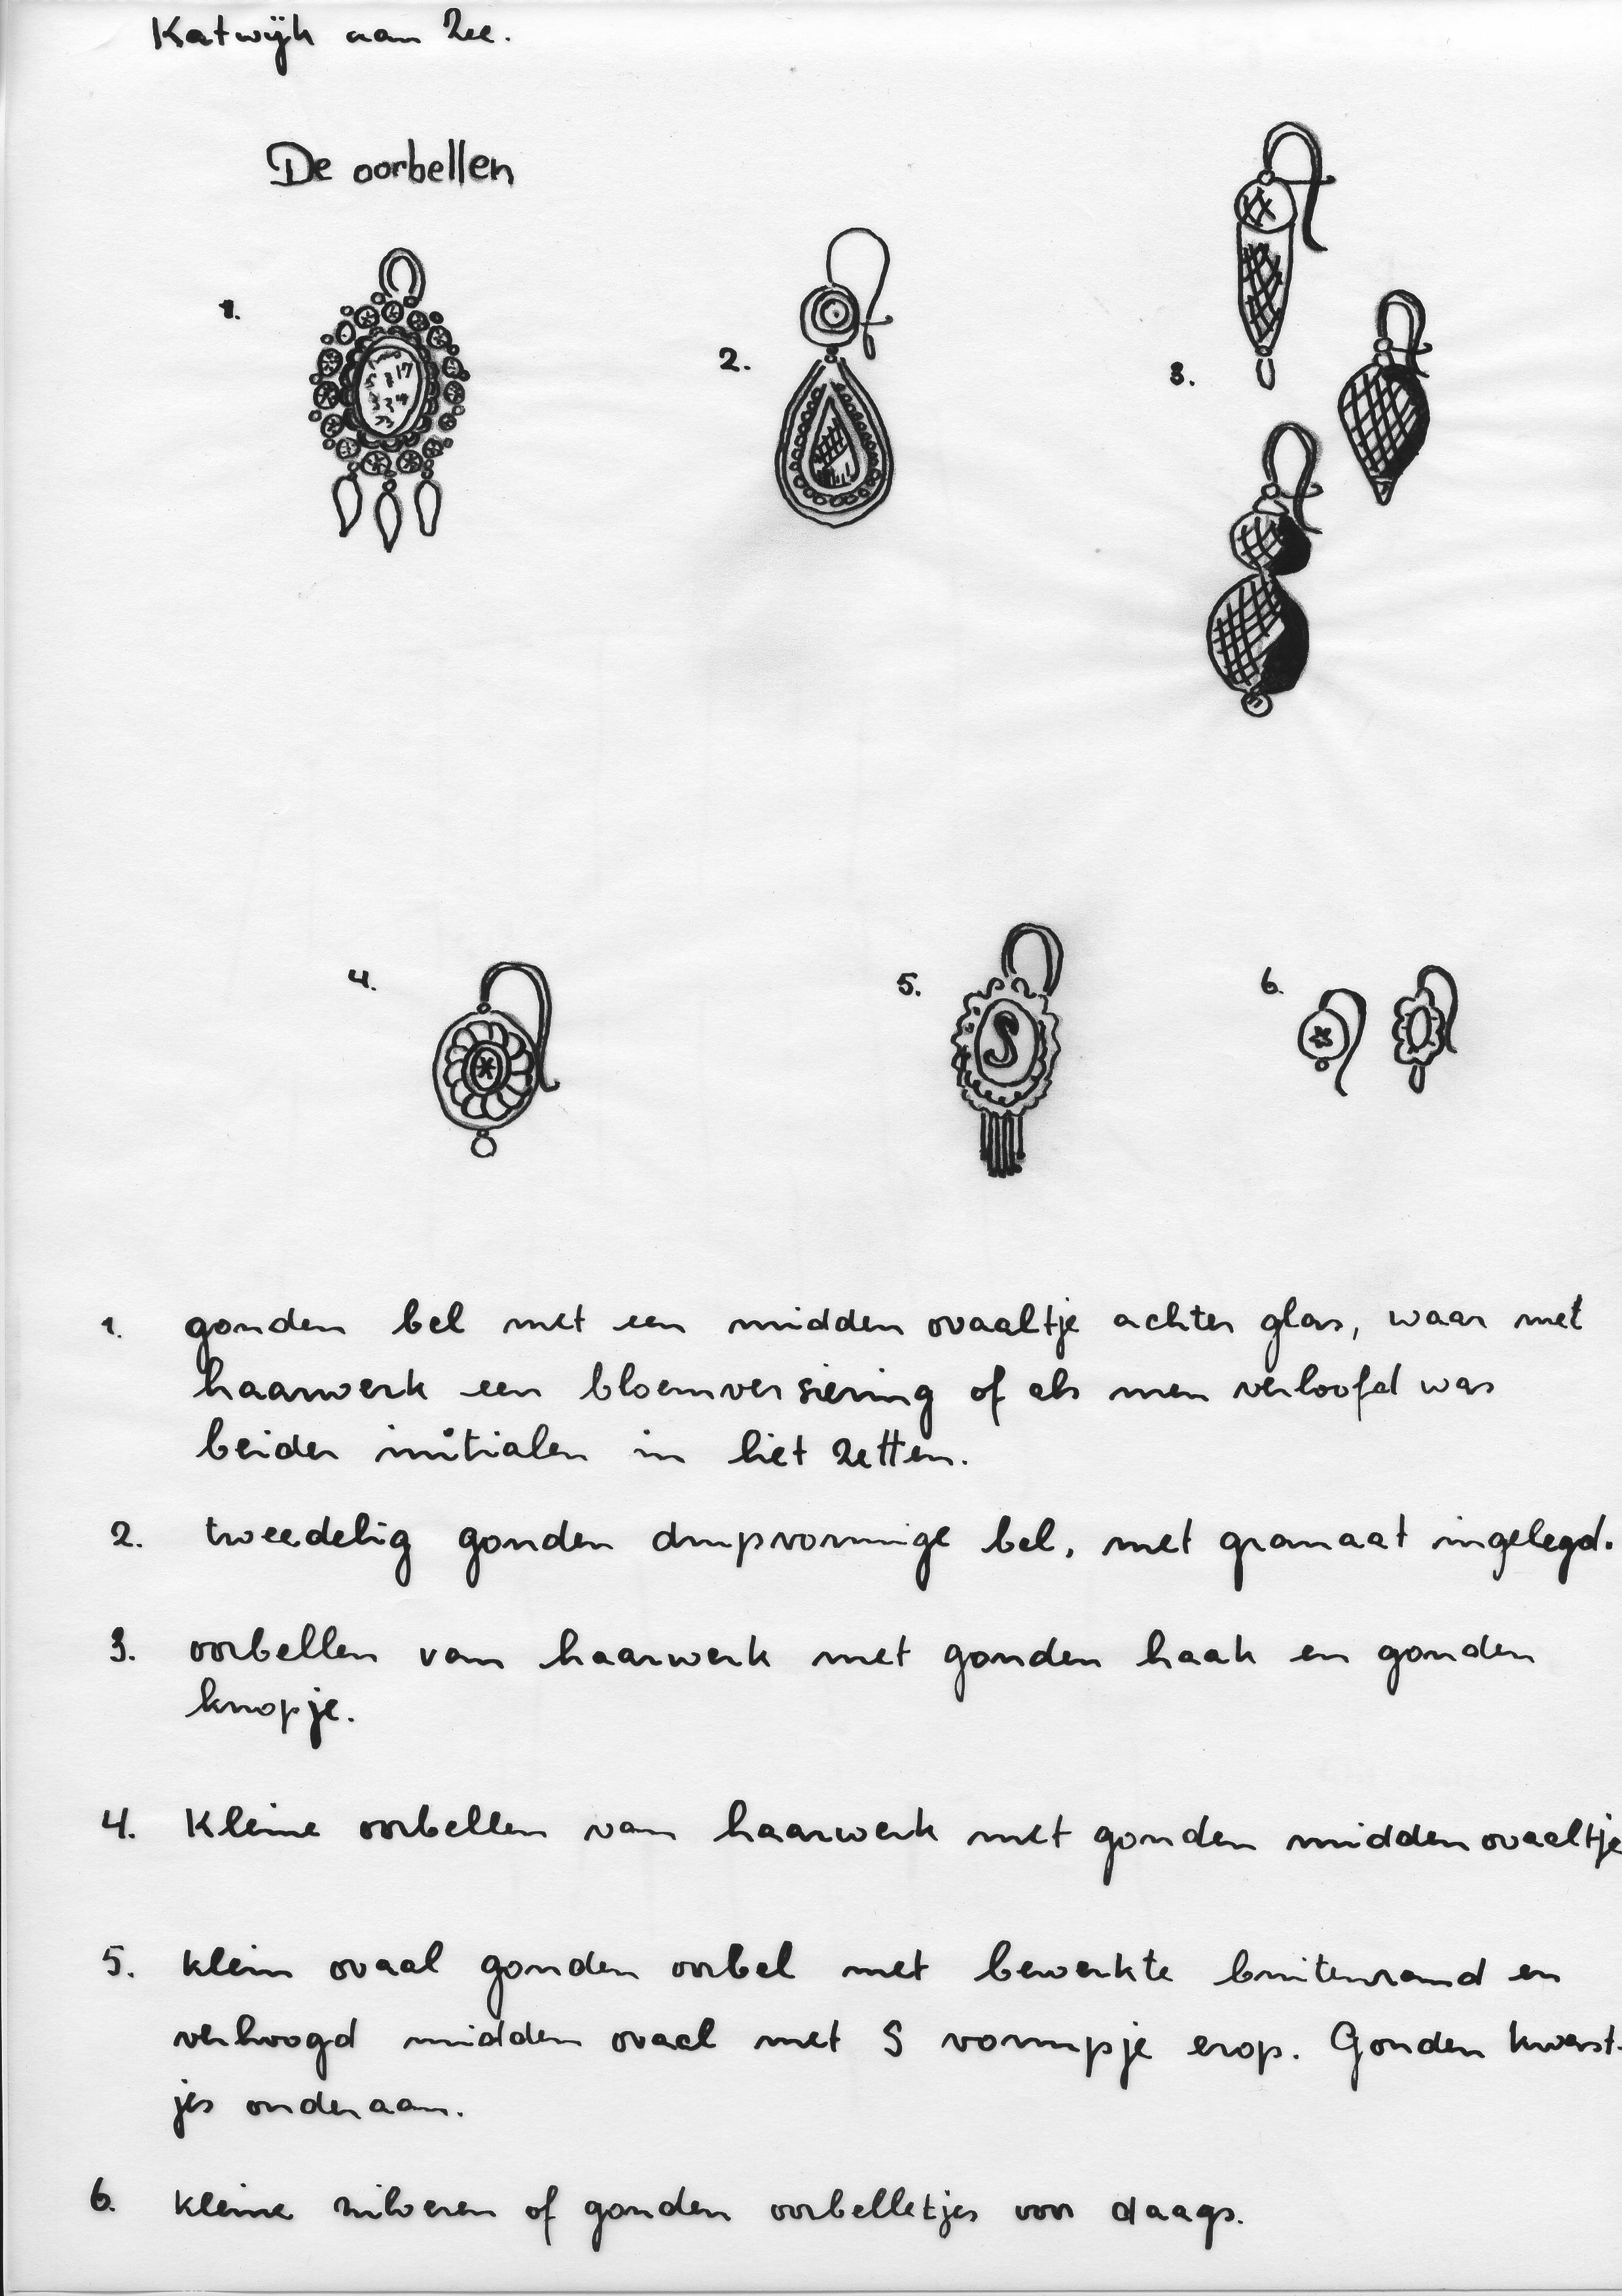 Katwijk aan Zee.
De oorbellen
1.
2.
3.
4.
5.
6.
1. gouden bel met een midden ovaaltje achter glas, waar met
haarwerk een bloemversiering of als men verloofd was
beider initialen in liet zetten.
2. tweedelig gouden drupvormige bel, met granaat ingelegd.
3. oorbellen van haarwerk met gouden haak en gouden
knopje.
4. Kleine oorbellen van haarwerk met gouden midden ovaaltje
5. klein ovaal gouden oorbel met bewerkte buitenrand en
verhoogd midden ovaal met S vormpje erop. Gouden kwast-
jes onderaan.
6. kleine zilveren of gouden oorbelletjes voor daags.